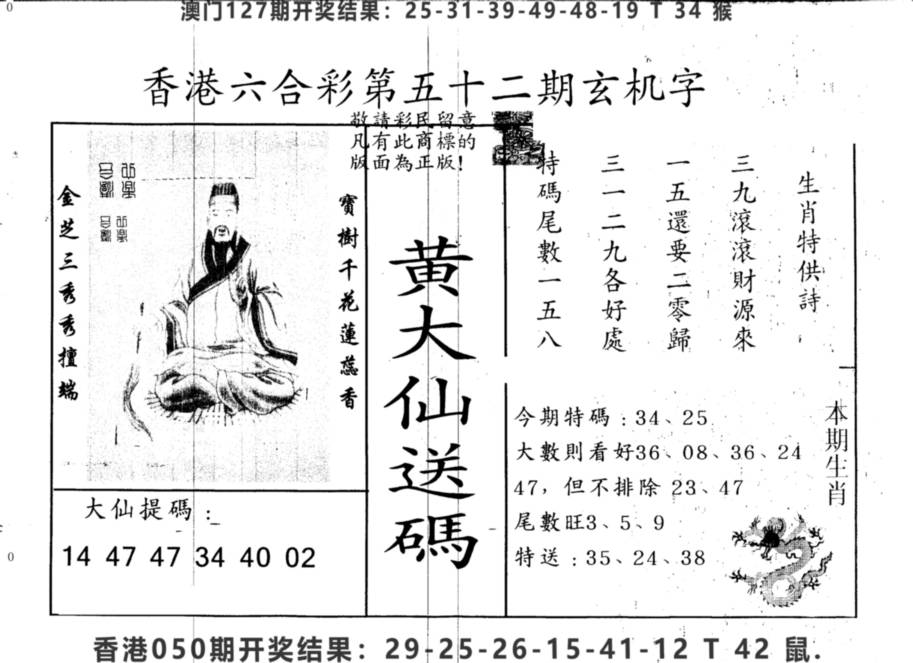 澳门127期开奖结果：25-31-39-49-48-19 T 34 猴
香港六合彩第五十二期玄机字
敬請彩民留意
凡有此商標的
版面為正版!
生肖特供詩
三九滾滾財源來
一五還要二零歸
三一二九各好處
特碼尾數一五八
寶樹千花蓮蕊香
金芝三秀秀擅端
黃大仙送碼
大仙提碼：
14 47 47 34 40 02
本期生肖
今期特碼：34、25
大數則看好36、08、36、24
47，但不排除 23、47
尾數旺3、5、9
特送：35、24、38
香港050期开奖结果：29-25-26-15-41-12 T 42 鼠.